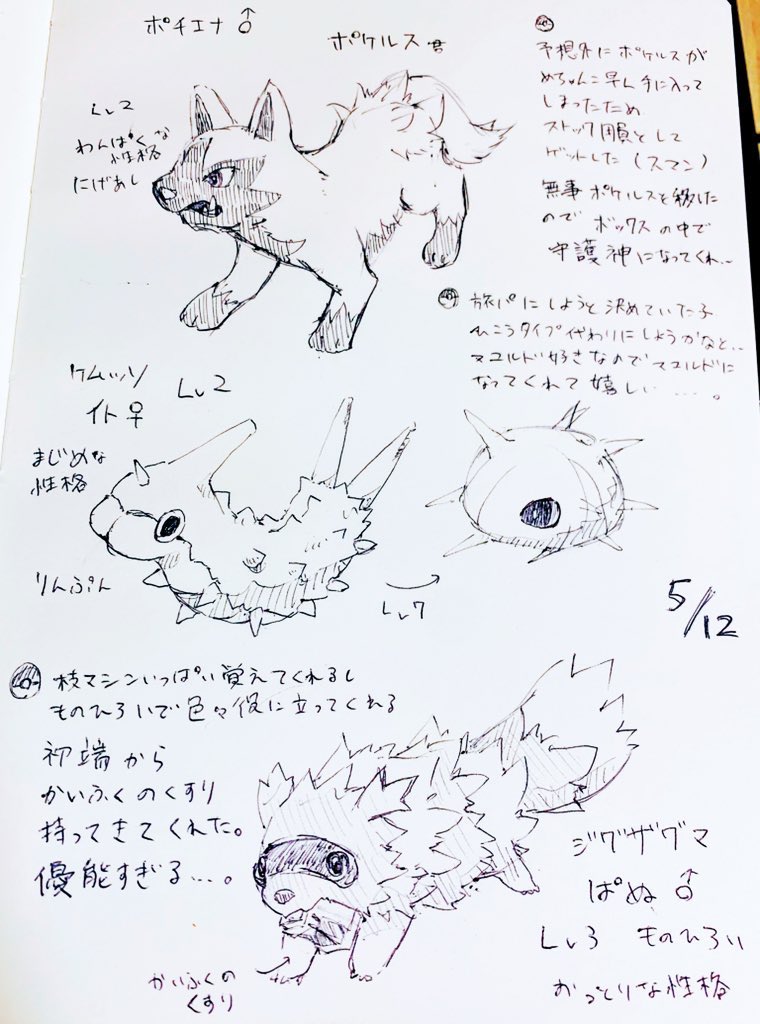 ポチエナ♂
ポケルス君
Lv2
わんぱくな
性格
にげあし
予想外にポケルスが
めちゃんこ早く手に入って
しまったため
ストック用員として
ゲットした(スマン)
無事ポケルスを移した
ので ボックスの中で
守護神になってくれ…
旅パにしようと決めていた子
ひこうタイプ代わりにしようかなと…
マユルド好きなのでマユルドに
なってくれて嬉しい……。
ケムッソ
イト♀
Lv2
まじめな
性格
りんぷん
Lv7
5/12
技マシンいっぱい覚えてくれるし
ものひろいで色々役に立ってくれる
初端から
かいふくのくすり
持ってきてくれた。
優能すぎる…。
かいふくの
くすり
ジグザグマ
ぱぬ♂
Lv3 ものひろい
おっとりな性格